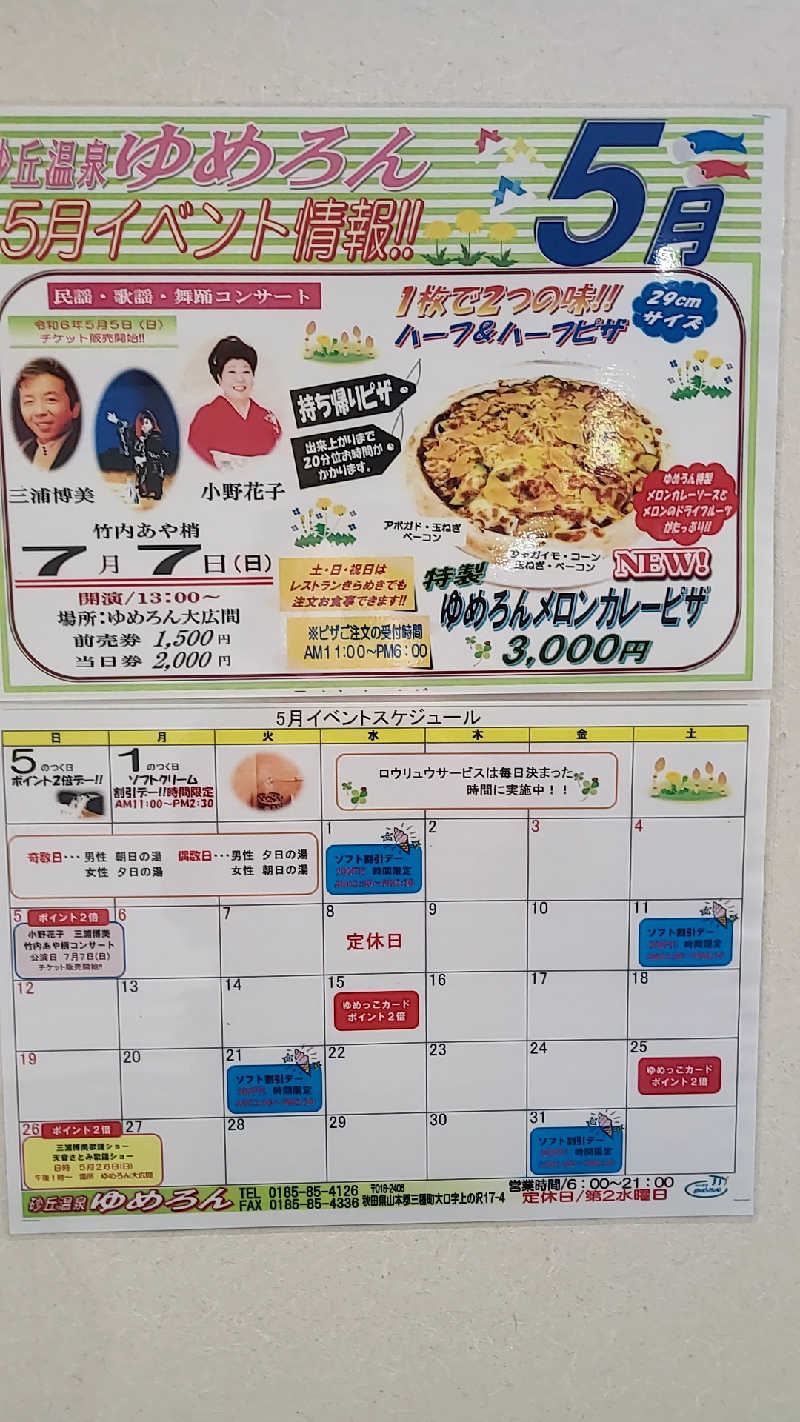 砂丘温泉ゆめろん
5月イベント情報!!
5月
民謡・歌謡・舞踊コンサート
令和6年5月5日（日）
チケット販売開始!!
三浦博美
小野花子
竹内あや梢
7月7日(日)
開演/13:00～
場所:ゆめろん大広間
前売券 1,500円
当日券 2,000円
1枚で2つの味!!
ハーフ&ハーフピザ
29cm
サイズ
持ち帰りピザ
出来上がりまで
20分位お時間が
かかります。
ゆめろん特製
メロンカレーソースと
メロンのドライフルーツ
がたっぷり!!
アボガド・玉ねぎ
ベーコン
ジャガイモ・コーン
玉ねぎ・ベーコン
NEW!
土・日・祝日は
レストランきらめきでも
注文お食事できます!!
※ピザご注文の受付時間
AM11:00～PM6:00
特製
ゆめろんメロンカレーピザ
3,000円
5月イベントスケジュール
日 月 火 水 木 金 土
5のつく日
ポイント2倍デー!!
1のつく日
ソフトクリーム
割引デー!!時間限定
AM11:00～PM2:30
ロウリュウサービスは毎日決まった
時間に実施中！！
奇数日･･･男性 朝日の湯 偶数日･･･男性 夕日の湯
女性 夕日の湯 女性 朝日の湯
1 2 3 4
ソフト割引デー
時間限定
5 6 7 8 9 10 11
ポイント2倍
小野花子 三浦博美
竹内あや梢コンサート
公演日 7月7日(日)
チケット販売開始!!
定休日
ソフト割引デー
時間限定
12 13 14 15 16 17 18
ゆめっこカード
ポイント2倍
19 20 21 22 23 24 25
ソフト割引デー
時間限定
ゆめっこカード
ポイント2倍
26 27 28 29 30 31
ポイント2倍
三浦博美歌謡ショー
天音さとみ歌謡ショー
日時 5月26日(日)
午後1時～ 場所 ゆめろん大広間
ソフト割引デー
時間限定
砂丘温泉 ゆめろん
TEL 0185-85-4126
FAX 0185-85-4336
〒018-2406
秋田県山本郡三種町大口字上の沢17-4
営業時間/6:00～21:00
定休日/第2水曜日